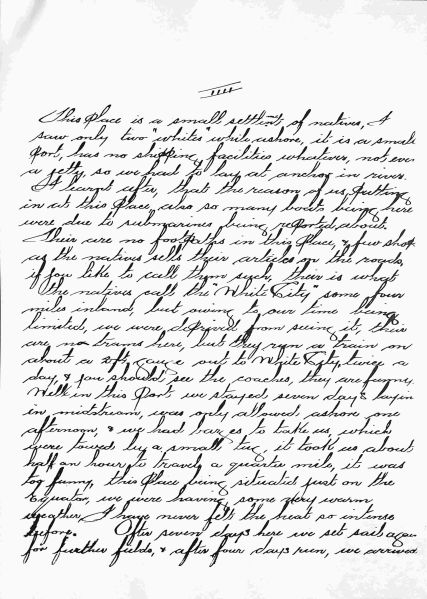 IIII
This place is a small settlmt of natives, I
saw only two "whites" while ashore, it is a small
port, has no shipping facilities whatever, not even
a jetty, so we had to lay at anchor in river.
I learnt after, that the reason of us putting
in at this place, also so many boats being here
were due to submarines being reported about.
Their are no footpaths in this place, & few shops
as the natives sells their articles on the roads,
if you like to call them such, their is what
the natives call the "White City" some four
miles inland, but owing to our time being
limited, we were deprived from seing it, their
are no trams here, but they run a train on
about a 2ft, gauge out to White City, twice a
day, & you should see the coaches, they are funny.
Well in this port we stayed seven days layin
in midstream, was only allowed ashore one
afternoon, & we had barges to take us, which
were towed by a small tug, it took us about
half an hour to travel a quarter mile, it was
too funny, this place being situated just on the
Equator, we were having some very warm
weather, I have never felt the heat so intense
before. After seven days here we set sail again
for further fields, & after four days run, we arrived